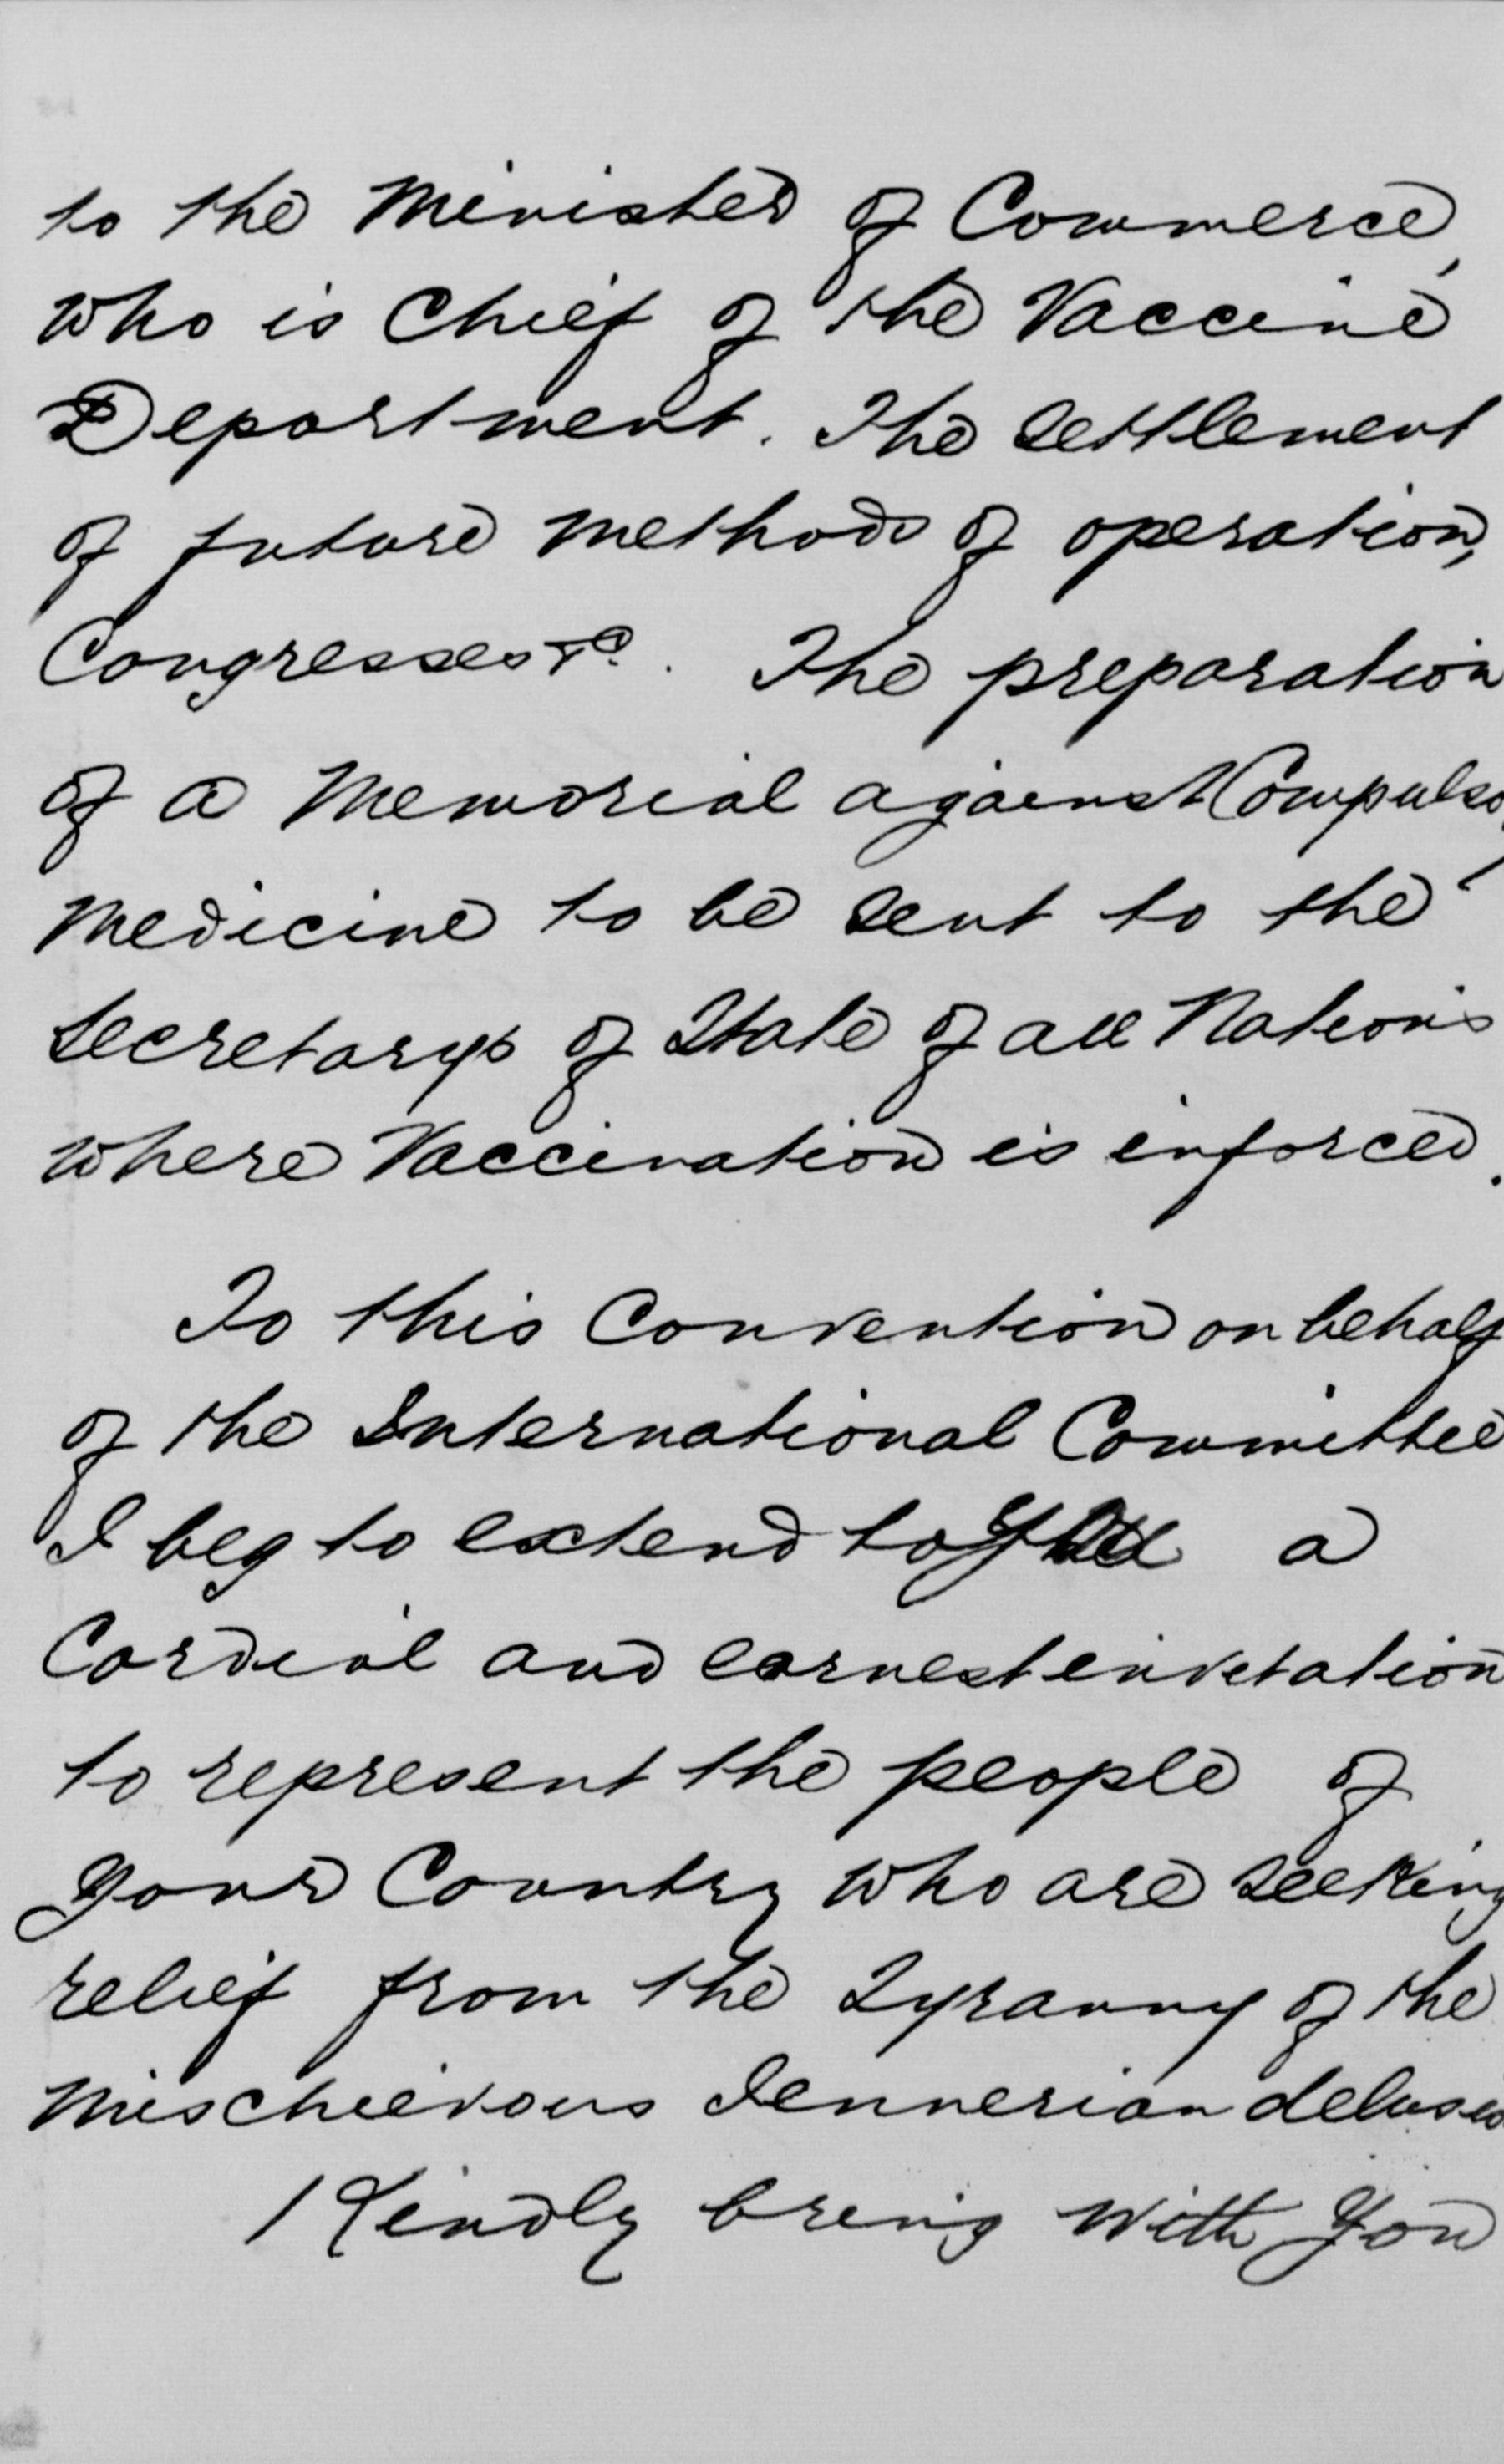 to the Minister of Commerce,
who is Chief of the Vaccine
Department. The settlement
of future methods of operation,
Congresses &c. The preparation
of a Memorial against Compulso
Medicine to be sent to the
Secretarys of State of all Nations
where Vaccination is inforced.
To this Convention on behalf
of the International Committee
I beg to extend to you a
Cordial and earnest invitation
to represent the people of
your Country who are seeking
relief from the Tyranny of the
Mischievous Jennerian delusio
Kindly bring with you